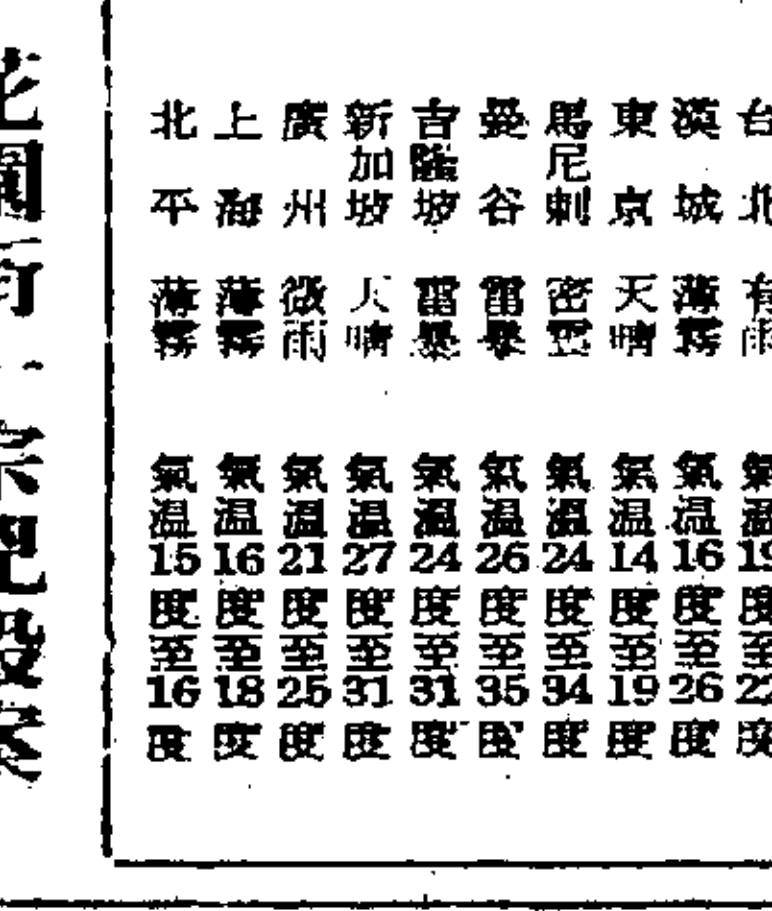 台北 有雨 氣温19度至22度
漢城 薄霧 氣温16度至26度
東京 天晴 氣温14度至19度
馬尼剌 密雲 氣温24度至34度
曼谷 雷暴 氣温26度至35度
吉隆坡 雷暴 氣温24度至31度
新加坡 天晴 氣温27度至31度
廣州 微雨 氣温21度至25度
上海 薄霧 氣温16度至18度
北平 薄霧 氣温15度至16度